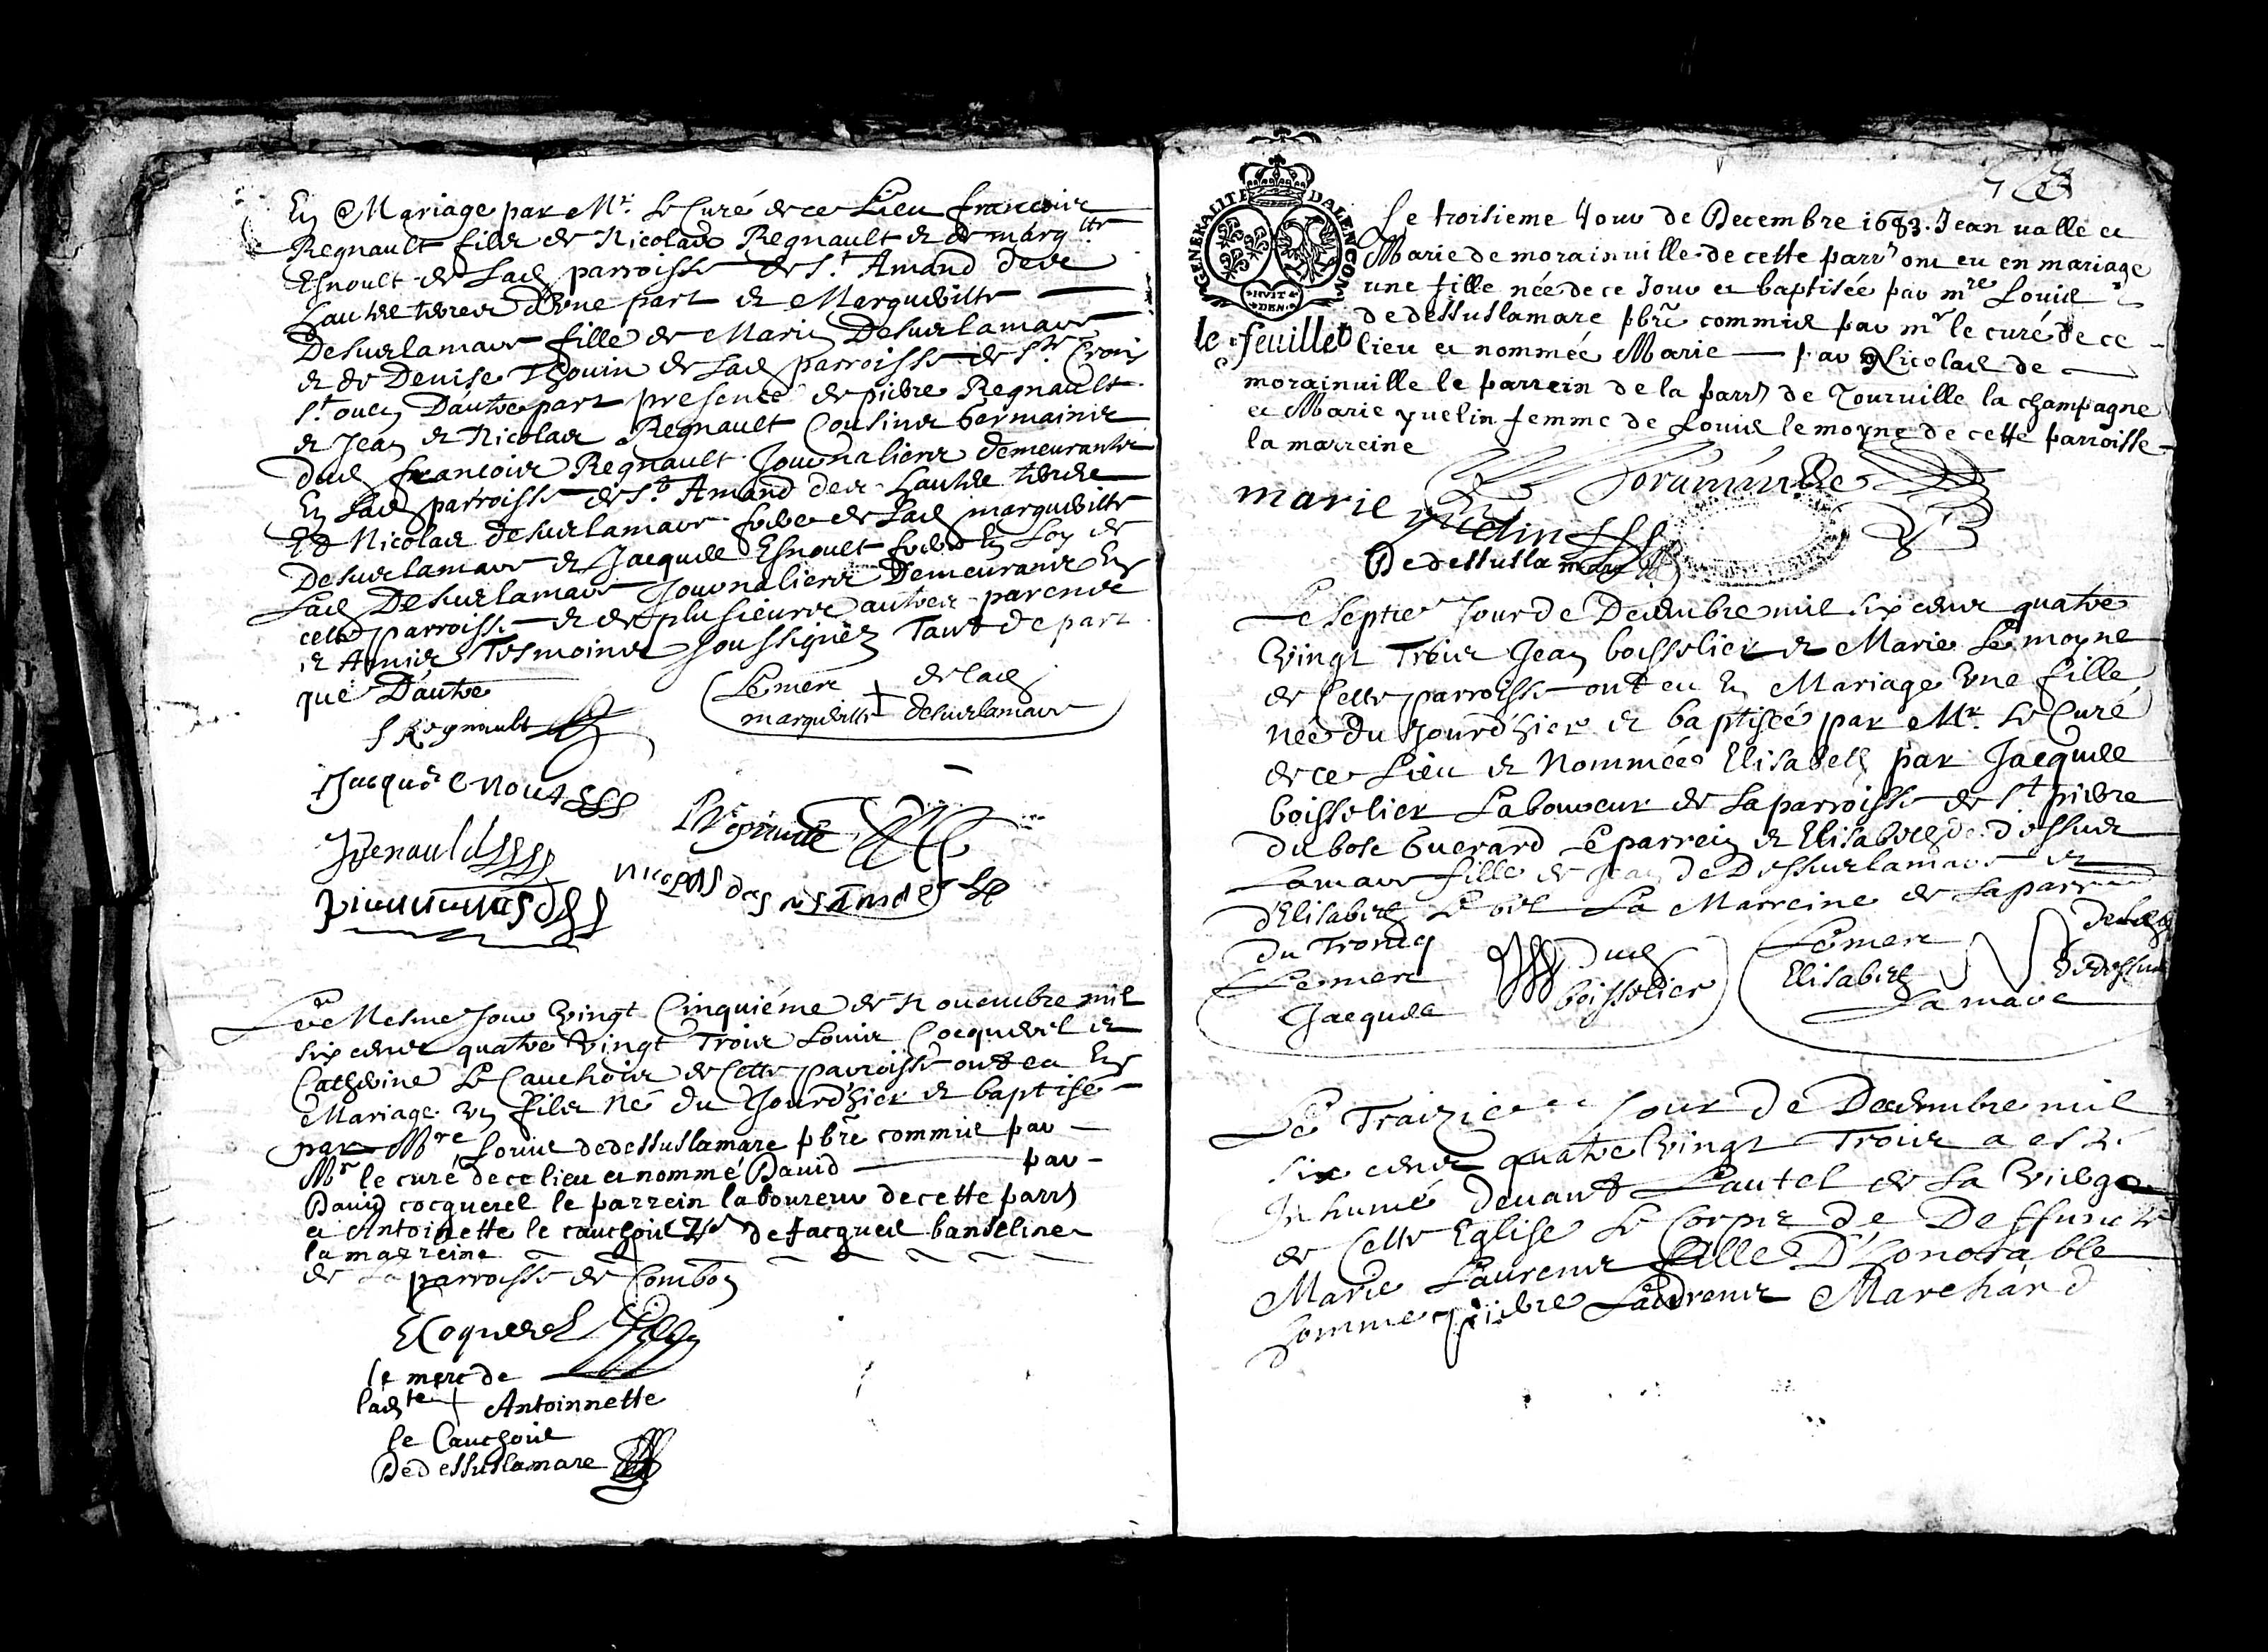 En Mariage par Mr. Le Curé de ce Lieu francois
Regnault filz de Nicolas Regnault et de marg.tte
Esnoult de Lad parroisse de St. Amand des
hautes terres d'une part et Margueritte
Desuslamare fille de Marin Desuslamare
et de Denise Thouin de Lad parroisse de Ste Croix
St ouen D'autre part presence de pierre Regnault
et Jean et Nicolas Regnault Cousins Germains
dud francois Regnault Journaliers demeurants
En Lad parroisse de St. Amand des hautes terres
Et Nicolas desuslamare frere de Lad margueritte
Desuslamare et Jacques Esnoult frere En Loy de
Lad Desuslamare Journaliers Demeurants En
cette parroisse et de plusieurs autres parents
et Amis Tesmoins soussignéz Tant de part
que D'autre
f Regnault
Le merc de lad
margueritte desuslamare
Jacques enout
Le Mesme Jour Vingt Cinquiéme de Nouembre mil
six cents quatre Vingt Trois Louis Cocquerel et
Catherine Le Cauchois de Cette parroisse ont eu En
Mariage Vn filz Né du Jourd'hier et baptisé
par Mre Louis dedessuslamare pbre commis par
Mr le curé de ce lieu et nommé Dauid par
Dauid cocquerel le parrein laboureur de cette parr
et Antoinette le cauchois de Jacques banseline
la marreine
de La parroisse de Combon
Coquerel
le merc de
ladte Antoinnette
le Cauchois
Dedessuslamare
GENERALITE DALENCON
HVIT
DEN
le feuillet
Le troisieme Jour de Decembre 1683. Jean vallé et
Marie de morainuille de cette parr ont eu en mariage
une fille née de ce Jour et baptisée par mre Louis
dedessuslamare pbre commis par mr le curé de ce
lieu et nommée Marie par Nicolas de
morainuille le parrein de la parr de Tourville la champagne
et Marie yuelin femme de Louis le moyne de cette parroisse
la marreine
marie yuelin
Dedessuslamare
Le septie Jour de Decembre mil six cents quatre
Vingt Trois Jean boisselier et Marie Le moyne
de Cette parroisse ont eu En Mariage Vne fille
née du Jourd'hier et baptisée par Mr. Le Curé
de ce Lieu et Nommée Elisabeth par Jacques
boisselier Laboureur de La parroisse de St pierre
du bosc Guerard Le parrein et Elisabeth de dessus
Lamare fille de Jean de Dessuslamare et
d'Elisabeth Le La Marreine de La parr
du Troncq
Le merc dud
Jacques boisselier
Le merc de lad
Elisabeth dedessus
Lamare
Le Traizie Jour de Decembre mil
six cents quatre Vingt Trois a esté
Inhumé deuant L'autel de La Vierge
de Cette Eglise Le Corps de Deffuncte
Marie Laurents fille D'honorable
homme pierre Laurents Marchand